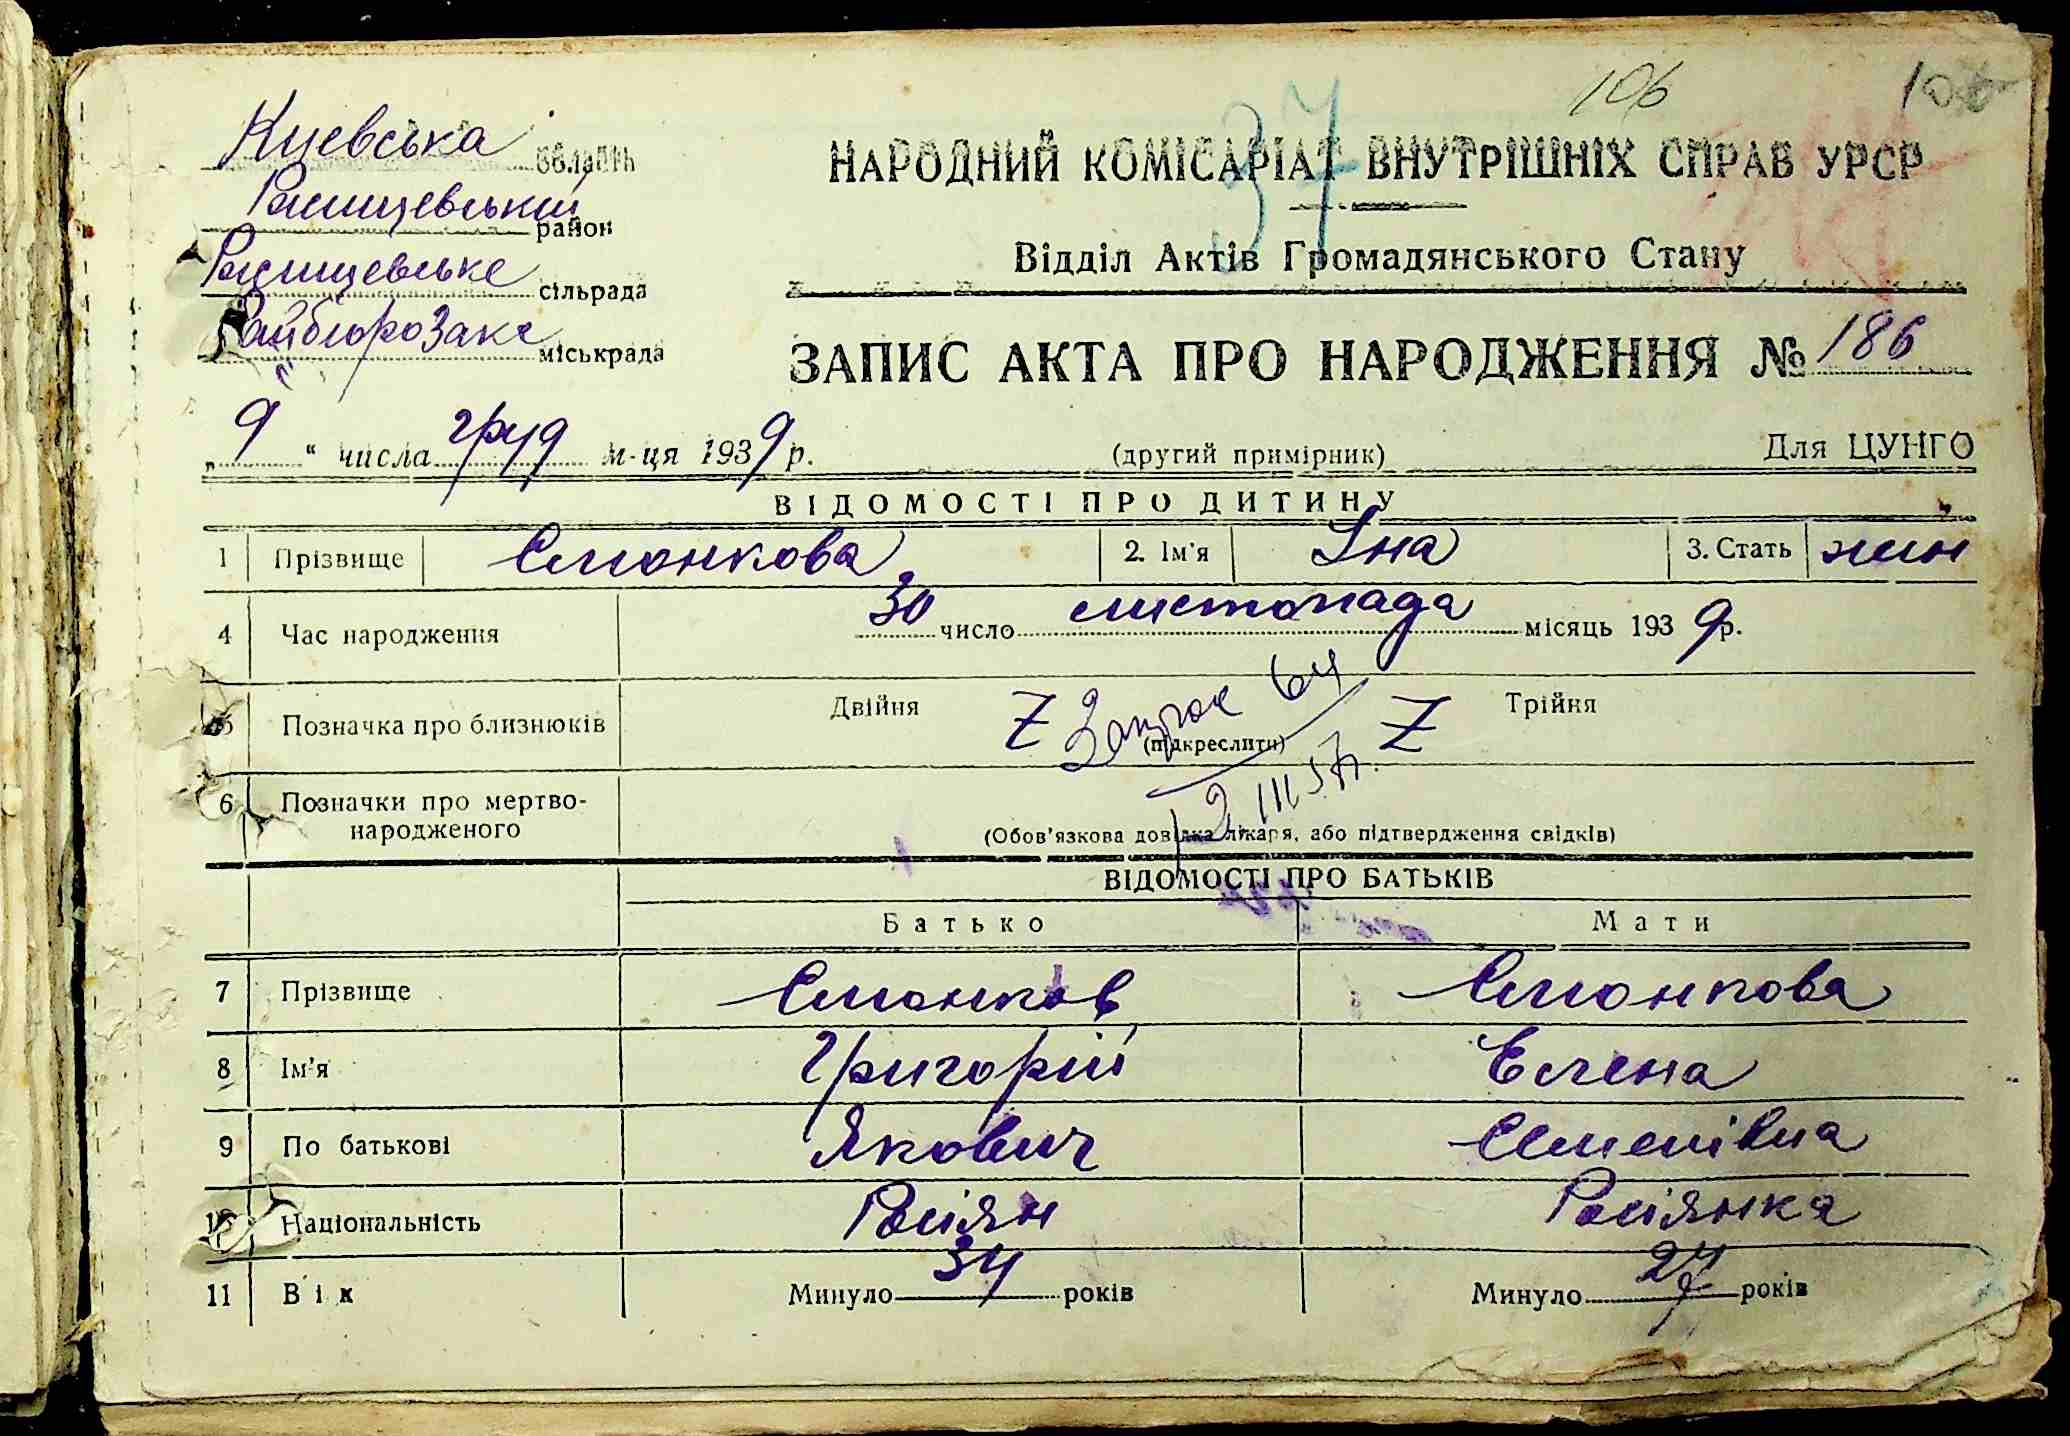 106
106
37
Киевська область
НАРОДНИЙ КОМІСАРІАТ ВНУТРІШНІХ СПРАВ УРСР
Ржищевський район
Відділ Актів Громадянського Стану
Ржищевське сільрада
Райбюро Загс міськрада
ЗАПИС АКТА ПРО НАРОДЖЕННЯ № 186
„ 9 “ числа груд м-ця 1939 р.
(другий примірник)
Для ЦУНГО
ВІДОМОСТІ ПРО ДИТИНУ
1 Прізвище Смонкова 2. Ім'я Іна 3. Стать жін
4 Час народження 30 число листопада місяць 1939 р.
5 Позначка про близнюків Двійня Z (підкреслити) Z Трійня
6 Позначки про мертво-
народженого
(Обов'язкова довідка лікаря, або підтвердження свідків)
ВІДОМОСТІ ПРО БАТЬКІВ
Батько Мати
7 Прізвище Смонков Смонкова
8 Ім'я Григорій Елена
9 По батькові Якович Семенівна
10 Національність Росіян Росіянка
11 Вік Минуло 34 років Минуло 24 років